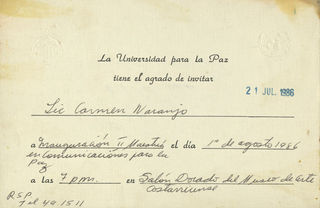 La Universidad para la Paz
tiene el agrado de invitar
21 JUL. 1986
Lic Carmen Naranjo
a Inauguración II Maestría el día 1º de agosto 1986
en Comunicaciones para la
Paz
a las 7 p.m. en Salón Dorado del Museo de Arte
Costarricense
R.S.P.
Tel 49 15 11